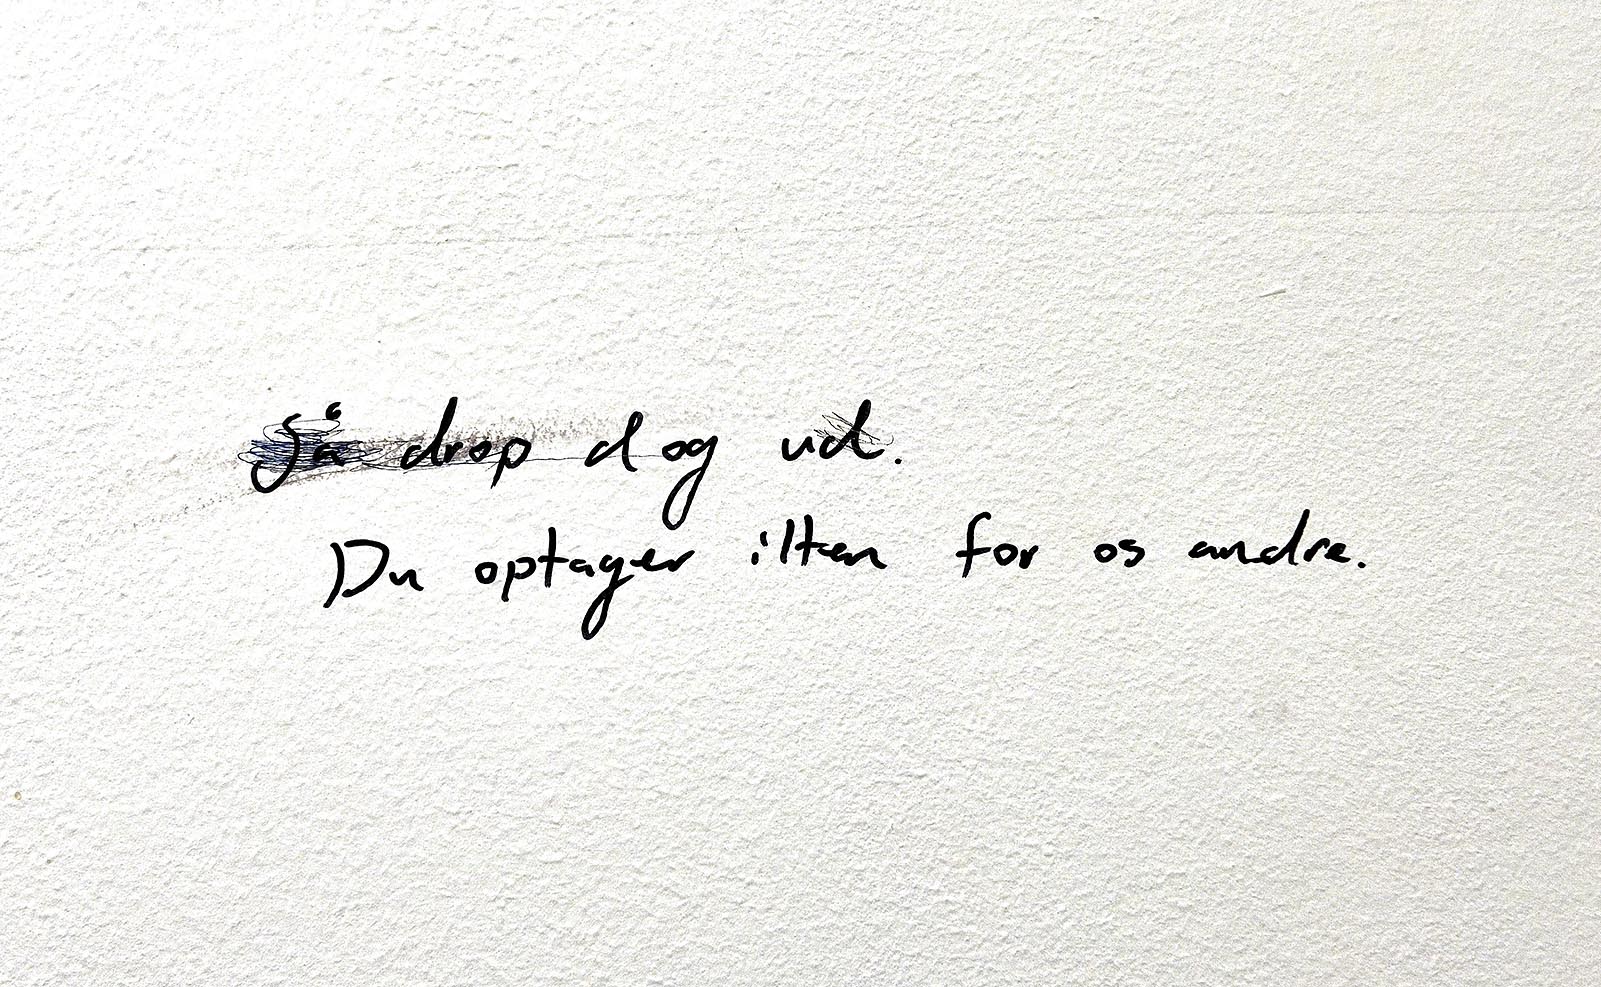 Så drop dog ud.
Du optager ilten for os andre.